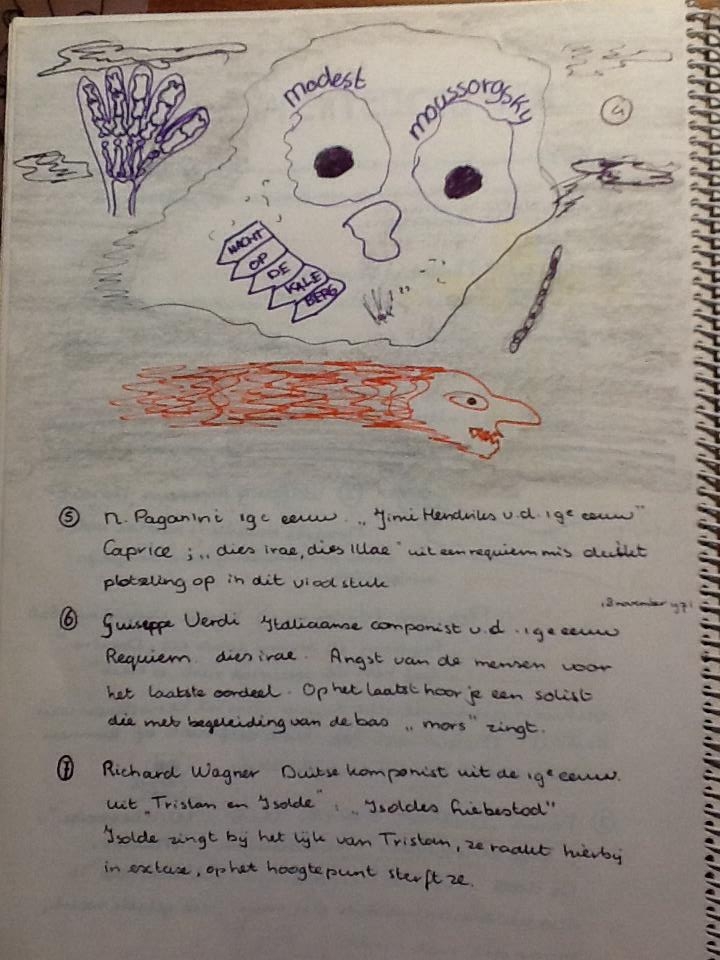 modest moussorgsky
④
NACHT
OP
DE
KALE
BERG
⑤ N. Paganini 19e eeuw. „Jimi Hendriks v.d. 19e eeuw"
Caprice ; „dies irae, dies illae" uit een requiemmis duikt
plotseling op in dit vioolstuk
18 november 1971
⑥ Guiseppe Verdi Italiaanse componist v.d. 19e eeuw
Requiem. dies irae. Angst van de mensen voor
het laatste oordeel. Op het laatst hoor je een solist
die met begeleiding van de bas „mors" zingt.
⑦ Richard Wagner Duitse komponist uit de 19e eeuw.
uit „Tristan en Isolde" : „Isoldes Liebestod"
Isolde zingt bij het lijk van Tristan, ze raakt hierbij
in extase, op het hoogtepunt sterft ze.